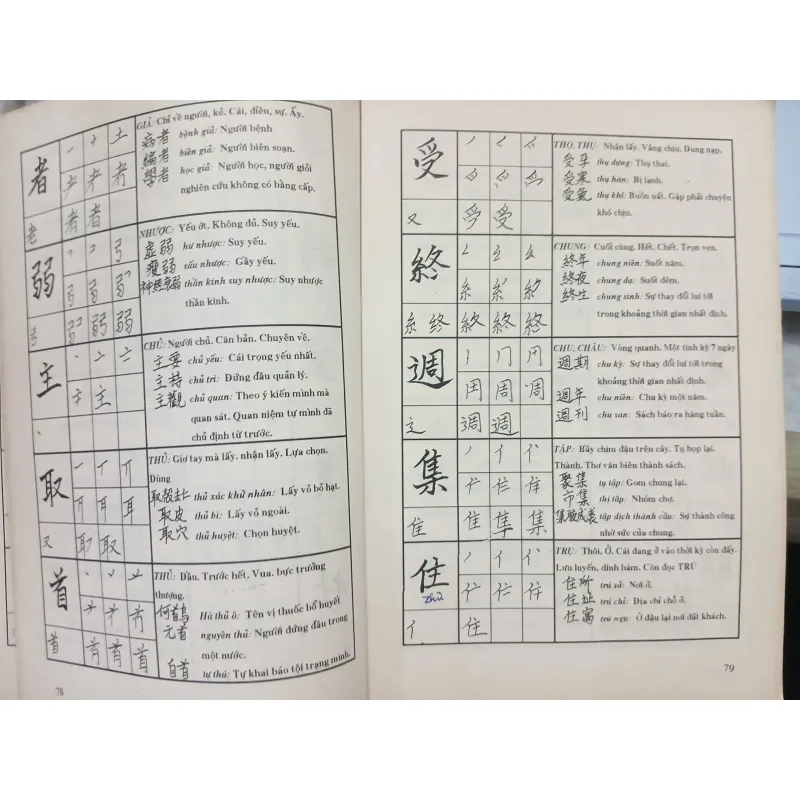 者
GIẢ: Chỉ về người, kẻ. Cái, điều, sự. Ấy.
病者 bệnh giả: Người bệnh
編者 biên giả: Người biên soạn.
學者 học giả: Người học, người giỏi
nghiên cứu không có bằng cấp.
老 者 者
弱
NHƯỢC: Yếu ớt. Không đủ. Suy yếu.
虛弱 hư nhược: Suy yếu.
瘦弱 sấu nhược: Gầy yếu.
神經衰弱 thần kinh suy nhược: Suy nhược
thần kinh.
弓 弱 弱
主
CHỦ: Người chủ. Căn bản. Chuyên về.
主要 chủ yếu: Cái trọng yếu nhất.
主持 chủ trì: Đứng đầu quản lý.
主觀 chủ quan: Theo ý kiến mình mà
quan sát. Quan niệm tự mình đã
chủ định từ trước.
取
THỦ: Giơ tay mà lấy. nhận lấy. Lựa chọn.
Dùng
取殼去仁 thủ xác khử nhân: Lấy vỏ bỏ hạt.
取皮 thủ bì: Lấy vỏ ngoài.
取穴 thủ huyệt: Chọn huyệt.
又 取 取
首
THỦ: Đầu. Trước hết. Vua. bực trưởng
thượng.
何首烏 Hà thủ ô: Tên vị thuốc bổ huyết
元首 nguyên thủ: Người đứng đầu trong
một nước.
自首 tự thú: Tự khai báo tội trạng mình.
首 首 首 首
78
受
THỌ, THỤ: Nhận lấy. Vâng chịu. Dung nạp.
受孕 thụ dựng: Thụ thai.
受寒 thụ hàn: Bị lạnh.
受氣 thụ khí: Buồn uất. Gặp phải chuyện
khó chịu.
又 受 受
終
CHUNG: Cuối cùng. Hết. Chết. Trọn vẹn.
終年 chung niên: Suốt năm.
終夜 chung dạ: Suốt đêm.
終生 chung sinh: Sự thay đổi lui tới
trong khoảng thời gian nhất định.
糸 終 終 終 終
週
CHU, CHÂU: Vòng quanh. Một tinh kỳ 7 ngày
週期 chu kỳ: Sự thay đổi lui tới trong
khoảng thời gian nhất định.
週年 chu niên: Chu kỳ một năm.
週刊 chu san: Sách báo ra hàng tuần.
週 週
集
TẬP: Bầy chim đậu trên cây. Tụ họp lại.
Thành. Thơ văn biên thành sách.
聚集 tụ tập: Gom chung lại.
市集 thị tập: Nhóm chợ.
tập dịch thành cầu: Sự thành công
nhờ sức của chung.
隹 隹 隼 集
住
zhù
TRỤ: Thôi. Ở. Cái đang ở vào thời kỳ còn đấy.
Lưu luyến, dính bám. Còn đọc TRÚ
住所 trú sở: Nơi ở.
住址 trú chỉ: Địa chỉ chỗ ở.
住寓 trú ngụ: Ở đậu lại nơi đất khách.
亻 住
79